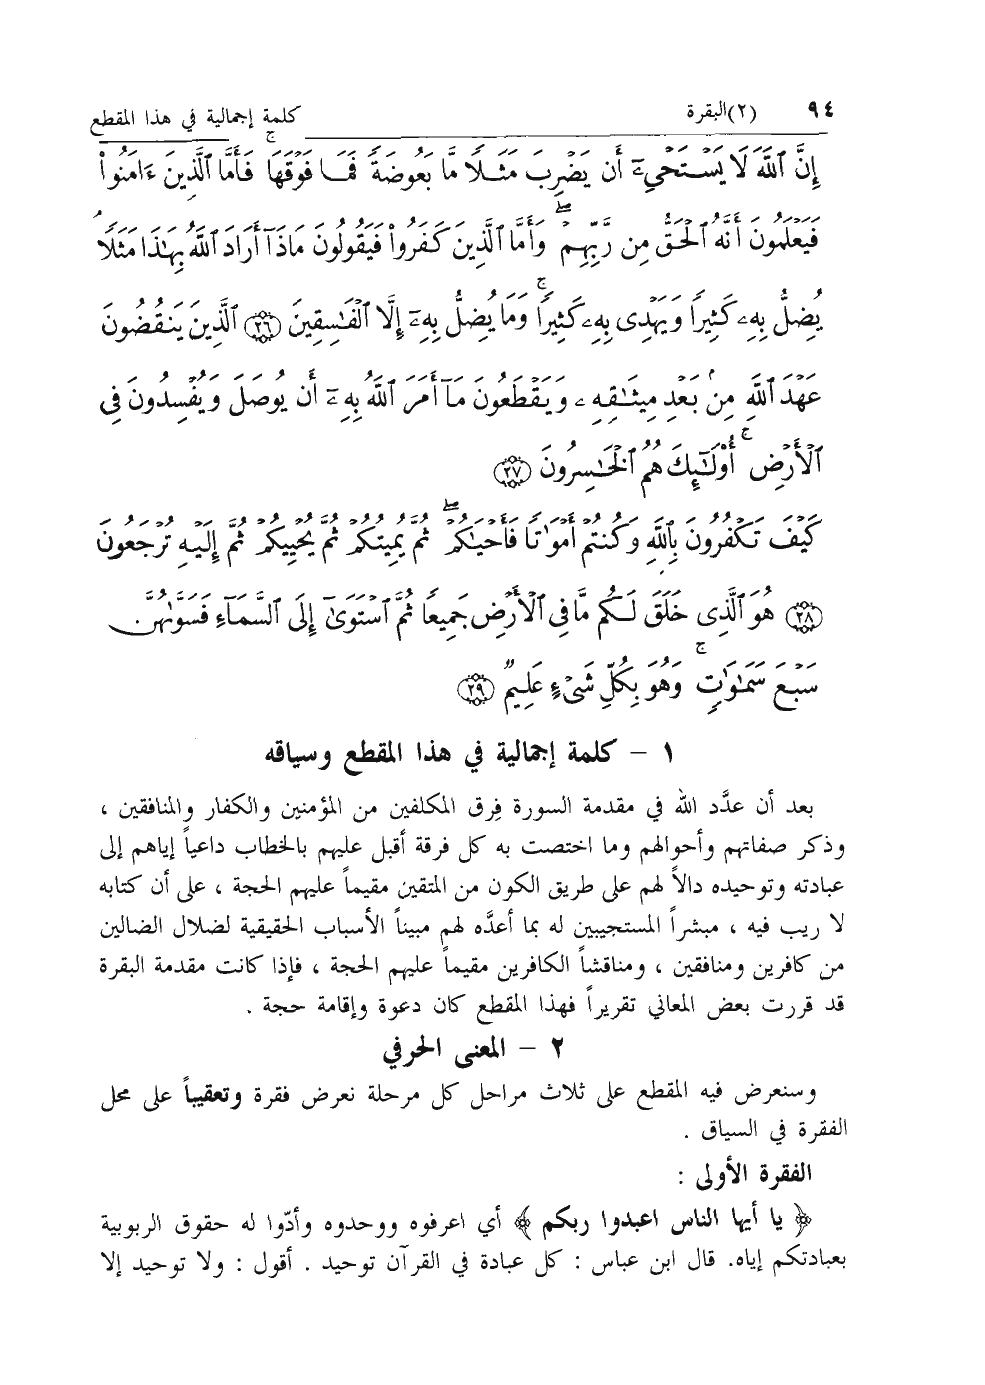 ٩٤ (٢) البقرة كلمة إجمالية في هذا المقطع
إِنَّ ٱللَّهَ لَا يَسْتَحْيِۦٓ أَن يَضْرِبَ مَثَلًا مَّا بَعُوضَةً فَمَا فَوْقَهَا ۚ فَأَمَّا ٱلَّذِينَ ءَامَنُوا۟
فَيَعْلَمُونَ أَنَّهُ ٱلْحَقُّ مِن رَّبِّهِمْ ۖ وَأَمَّا ٱلَّذِينَ كَفَرُوا۟ فَيَقُولُونَ مَاذَآ أَرَادَ ٱللَّهُ بِهَـٰذَا مَثَلًا ۘ
يُضِلُّ بِهِۦ كَثِيرًا وَيَهْدِى بِهِۦ كَثِيرًا ۚ وَمَا يُضِلُّ بِهِۦٓ إِلَّا ٱلْفَـٰسِقِينَ ﴿٢٦﴾ ٱلَّذِينَ يَنقُضُونَ
عَهْدَ ٱللَّهِ مِنۢ بَعْدِ مِيثَـٰقِهِۦ وَيَقْطَعُونَ مَآ أَمَرَ ٱللَّهُ بِهِۦٓ أَن يُوصَلَ وَيُفْسِدُونَ فِى
ٱلْأَرْضِ ۚ أُو۟لَـٰٓئِكَ هُمُ ٱلْخَـٰسِرُونَ ﴿٢٧﴾
كَيْفَ تَكْفُرُونَ بِٱللَّهِ وَكُنتُمْ أَمْوَٰتًا فَأَحْيَـٰكُمْ ۖ ثُمَّ يُمِيتُكُمْ ثُمَّ يُحْيِيكُمْ ثُمَّ إِلَيْهِ تُرْجَعُونَ
﴿٢٨﴾ هُوَ ٱلَّذِى خَلَقَ لَكُم مَّا فِى ٱلْأَرْضِ جَمِيعًا ثُمَّ ٱسْتَوَىٰٓ إِلَى ٱلسَّمَآءِ فَسَوَّىٰهُنَّ
سَبْعَ سَمَـٰوَٰتٍ ۚ وَهُوَ بِكُلِّ شَىْءٍ عَلِيمٌ ﴿٢٩﴾
١ – كلمة إجمالية في هذا المقطع وسياقه
بعد أن عدَّد الله في مقدمة السورة فِرق المكلفين من المؤمنين والكفار والمنافقين ،
وذكر صفاتهم وأحوالهم وما اختصت به كل فرقة أقبل عليهم بالخطاب داعياً إياهم إلى
عبادته وتوحيده دالاً لهم على طريق الكون من المتقين مقيماً عليهم الحجة ، على أن كتابه
لا ريب فيه ، مبشراً المستجيبين له بما أعدَّه لهم مبيناً الأسباب الحقيقية لضلال الضالين
من كافرين ومنافقين ، ومناقشاً الكافرين مقيماً عليهم الحجة ، فإذا كانت مقدمة البقرة
قد قررت بعض المعاني تقريراً فهذا المقطع كان دعوة وإقامة حجة .
٢ – المعنى الحرفي
وسنعرض فيه المقطع على ثلاث مراحل كل مرحلة نعرض فقرة وتعقيباً على محل
الفقرة في السياق .
الفقرة الأولى :
﴿ يا أيها الناس اعبدوا ربكم ﴾ أي اعرفوه ووحدوه وأدّوا له حقوق الربوبية
بعبادتكم إياه. قال ابن عباس : كل عبادة في القرآن توحيد . أقول : ولا توحيد إلا